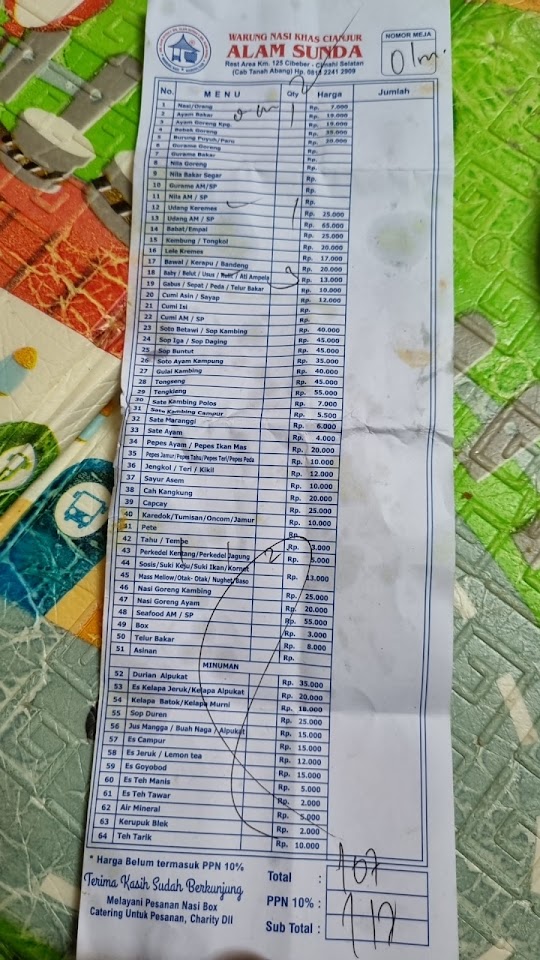 WARUNG NASI KHAS CIANJUR
ALAM SUNDA
Rest Area Km. 125 Cibeber - Cimahi Selatan
(Cab Tanah Abang) Hp. 0813 2241 2909
NOMOR MEJA
No. MENU Qty Harga Jumlah
1 Nasi/Orang Rp. 7.000
2 Ayam Bakar Rp. 19.000
3 Ayam Goreng Kpg. Rp. 19.000
4 Bebek Goreng Rp. 35.000
5 Burung Puyuh/Paru Rp. 20.000
6 Gurame Goreng Rp.
7 Gurame Bakar Rp.
8 Nila Goreng Rp.
9 Nila Bakar Segar Rp.
10 Gurame AM/SP Rp.
11 Nila AM / SP Rp.
12 Udang Karemes Rp. 25.000
13 Udang AM / SP Rp. 65.000
14 Babat/Empal Rp. 25.000
15 Kembung / Tongkol Rp. 20.000
16 Lele Kremes Rp. 17.000
17 Bawal / Kerapu / Bandeng Rp. 20.000
18 Baby / Belut / Usus / Ati Ampela Rp. 13.000
19 Gabus / Sepat / Peda / Telur Bakar Rp. 10.000
20 Cumi Asin / Sayap Rp. 12.000
21 Cumi Isi Rp.
22 Cumi AM / SP Rp.
23 Soto Betawi / Sop Kambing Rp. 40.000
24 Sop Iga / Sop Daging Rp. 45.000
25 Sop Buntut Rp. 45.000
26 Soto Ayam Kampung Rp. 35.000
27 Gulai Kambing Rp. 40.000
28 Tongseng Rp. 45.000
29 Tengkleng Rp. 55.000
30 Sate Kambing Polos Rp. 7.000
31 Sate Kambing Campur Rp. 5.500
32 Sate Maranggi Rp. 6.000
33 Sate Ayam Rp. 4.000
34 Pepes Ayam / Pepes Ikan Mas Rp. 20.000
35 Pepes Jamur/Pepes Tahu/Pepes Teri/Pepes Peda Rp. 10.000
36 Jengkol / Teri / Kikil Rp. 12.000
37 Sayur Asem Rp. 10.000
38 Cah Kangkung Rp. 20.000
39 Capcay Rp. 25.000
40 Karedok/Tumisan/Oncom/Jamur Rp. 10.000
41 Pete Rp.
42 Tahu / Tempe Rp. 3.000
43 Perkedel Kentang/Perkedel Jagung Rp. 5.000
44 Sosis/Suki Keju/Suki Ikan/Kornet
45 Hass Mellow/Otak- Otak/ Nughet/Baso Rp. 13.000
46 Nasi Goreng Kambing Rp. 25.000
47 Nasi Goreng Ayam Rp. 20.000
48 Seafood AM / SP Rp. 55.000
49 Box Rp. 3.000
50 Telur Bakar Rp. 8.000
51 Asinan Rp.
MINUMAN
52 Durian Alpukat Rp. 35.000
53 Es Kelapa Jeruk/Kelapa Alpukat Rp. 20.000
54 Kelapa Batok/Kelapa Murni Rp. 18.000
55 Sop Duren Rp. 25.000
56 Jus Mangga / Buah Naga / Alpukat Rp. 15.000
57 Es Campur Rp. 15.000
58 Es Jeruk / Lemon tea Rp. 12.000
59 Es Goyobod Rp. 15.000
60 Es Teh Manis Rp. 5.000
61 Es Teh Tawar Rp. 2.000
62 Air Mineral Rp. 5.000
63 Kerupuk Blek Rp. 2.000
64 Teh Tarik Rp. 10.000
* Harga Belum termasuk PPN 10%
Terima Kasih Sudah Berkunjung
Melayani Pesanan Nasi Box
Catering Untuk Pesanan, Charity Dll
Total : 107
PPN 10% :
Sub Total : 117